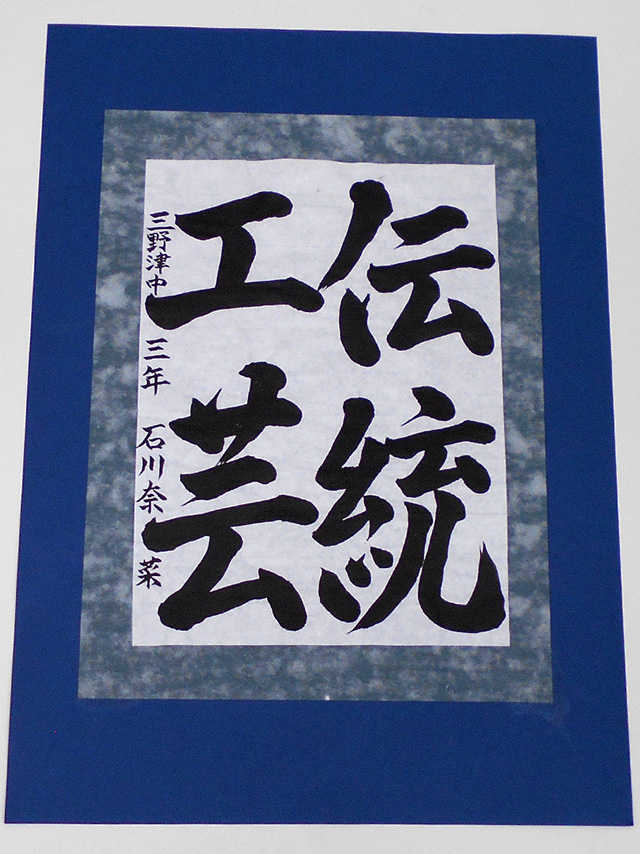 伝統
工芸
三野津中 三年 石川奈菜